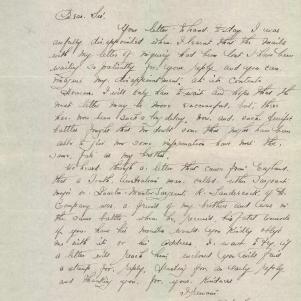 Dear Sir.
Your letter to hand to day I was
awfully disappointed when I learnt that the mails
with my letter of inquiry had been lost I have been
waiting so patiently for your reply, and you can
imagine my disappointment, at its contents
However I will only have to wait and hope that the
next letter may be more successful, but, there
has now been such a long delay, now, and, such fierce
battles fought that no doubt some that might have been
able to give me some information have met the
same fate as my brother.
We heard through a letter that came from England
that a South Australian man, called, either Sergeant
major or Quarter-Master Sargent R. of D.
Company was a friend of my brothers and was in
the same battle when he received his fatal wounds
if you have his would you kindly oblige
me with it or his address. I want to try if
a letter will reach him enclosed you will find
a stamp for reply, Trusting for an early reply
and thanking you, for your kindness
I remain